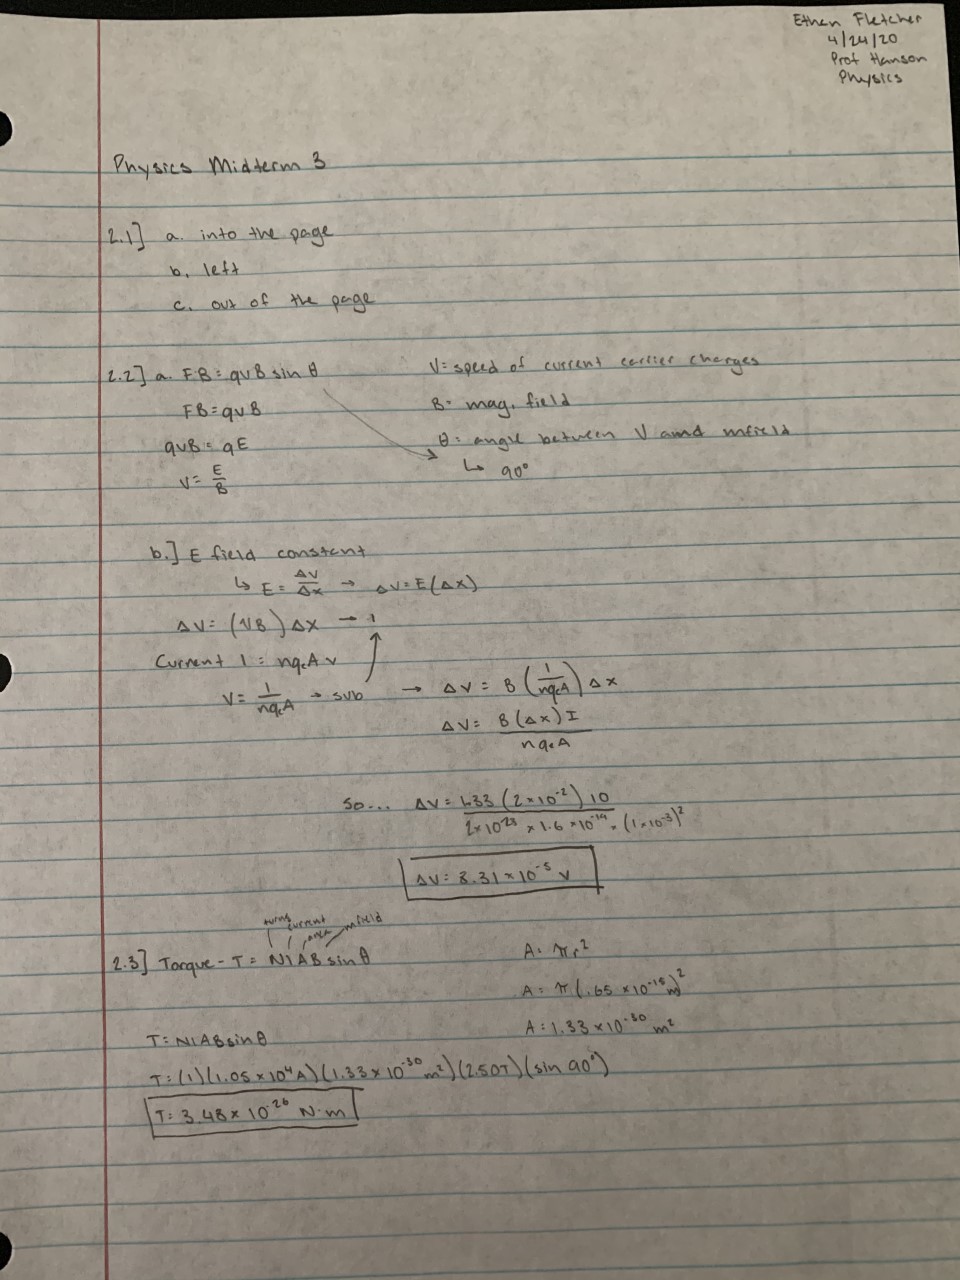 Ethan Fletcher
4/24/20
Prof Hanson
Physics
Physics Midterm 3
2.1] a. into the page
b. left
c. out of the page
2.2] a. FB = qvB sin θ
V = speed of current carrier charges
FB = qvB
B = mag. field
qvB = qE
θ = angle between V amd mfield
V = E/B
↳ 90°
b.] E field constant
↳ E = ΔV/Δx → ΔV = E(Δx)
ΔV = (VB) Δx → 1
Current I = nqcA v
V = I/nqcA → sub → ΔV = B (I/nqcA) Δx
ΔV = B(Δx)I / nqcA
So... ΔV = 1.33 (2×10⁻²) 10 / 2×10²⁸ × 1.6 × 10⁻¹⁹ × (1×10⁻³)²
ΔV = 8.31 × 10⁻⁵ V
turns current area mfield
2.3] Torque - T = NIAB sin θ
A = πr²
A = π(.65 × 10⁻¹⁵ m)²
A = 1.33 × 10⁻³⁰ m²
T = NIAB sin θ
T = (1)(1.05 × 10⁴ A)(1.33 × 10⁻³⁰ m²)(2.50T)(sin 90°)
T = 3.48 × 10⁻²⁶ N·m